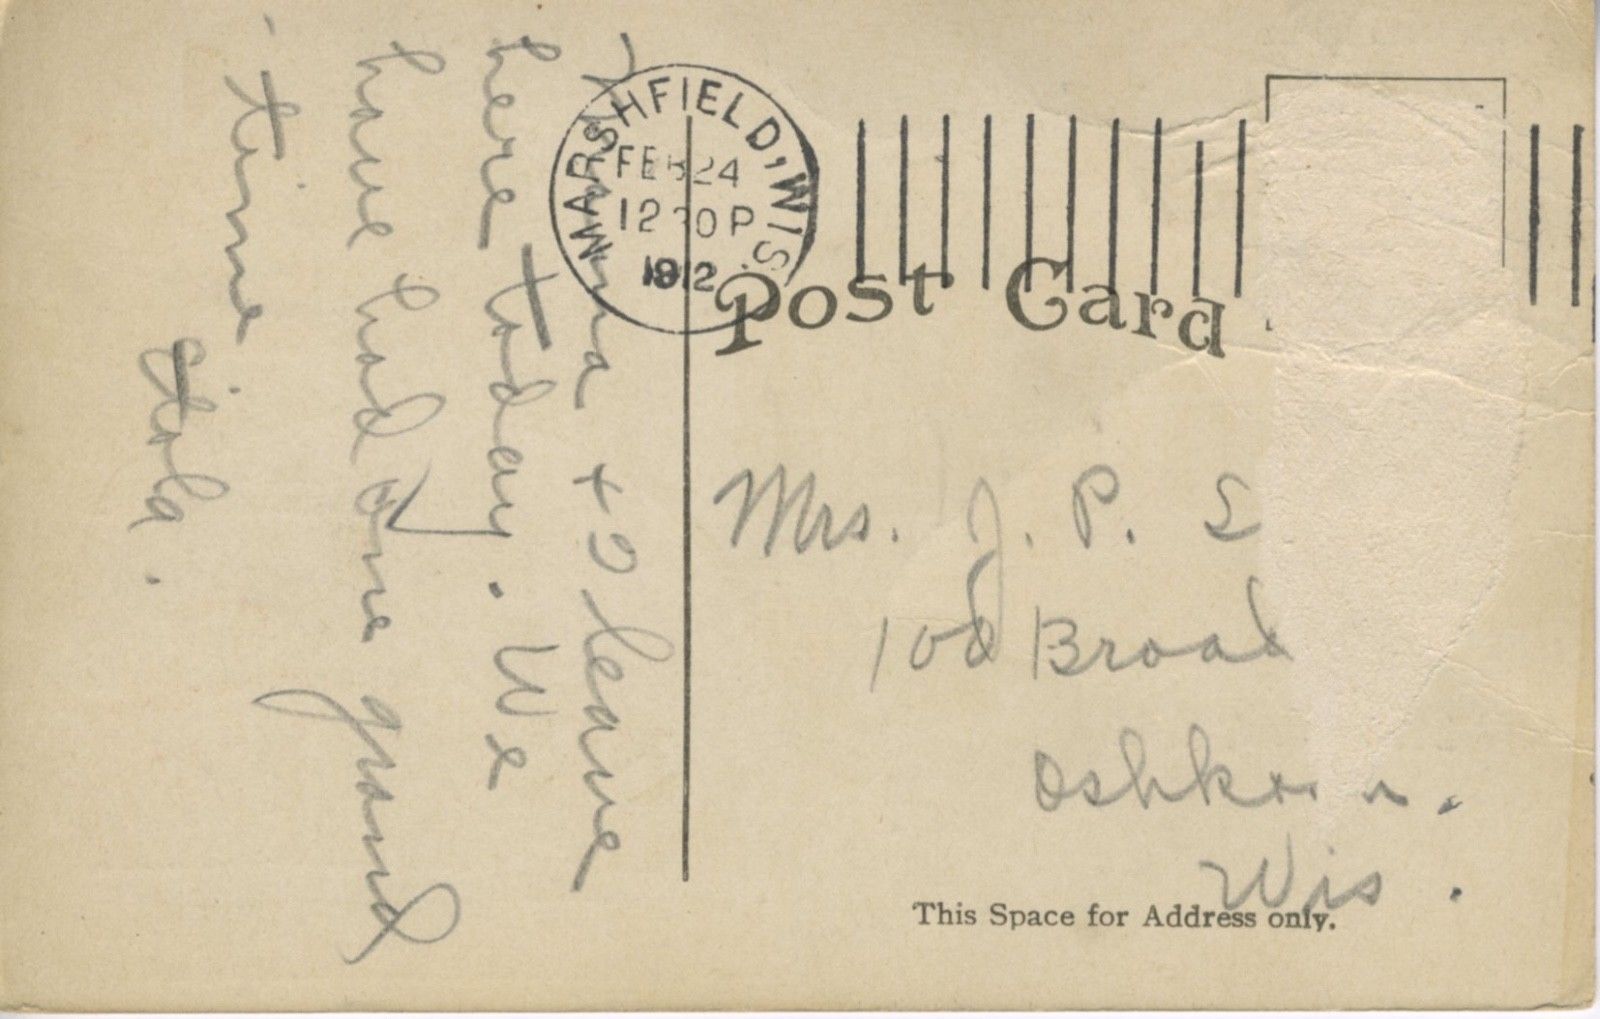 MARSHFIELD, WIS.
FEB 24
12 30 P
1912
Post Card
+ I leave
here today. We
have had one grand
time
Mrs. J. P. S
100 Broad
Oshko
Wis.
This Space for Address only.